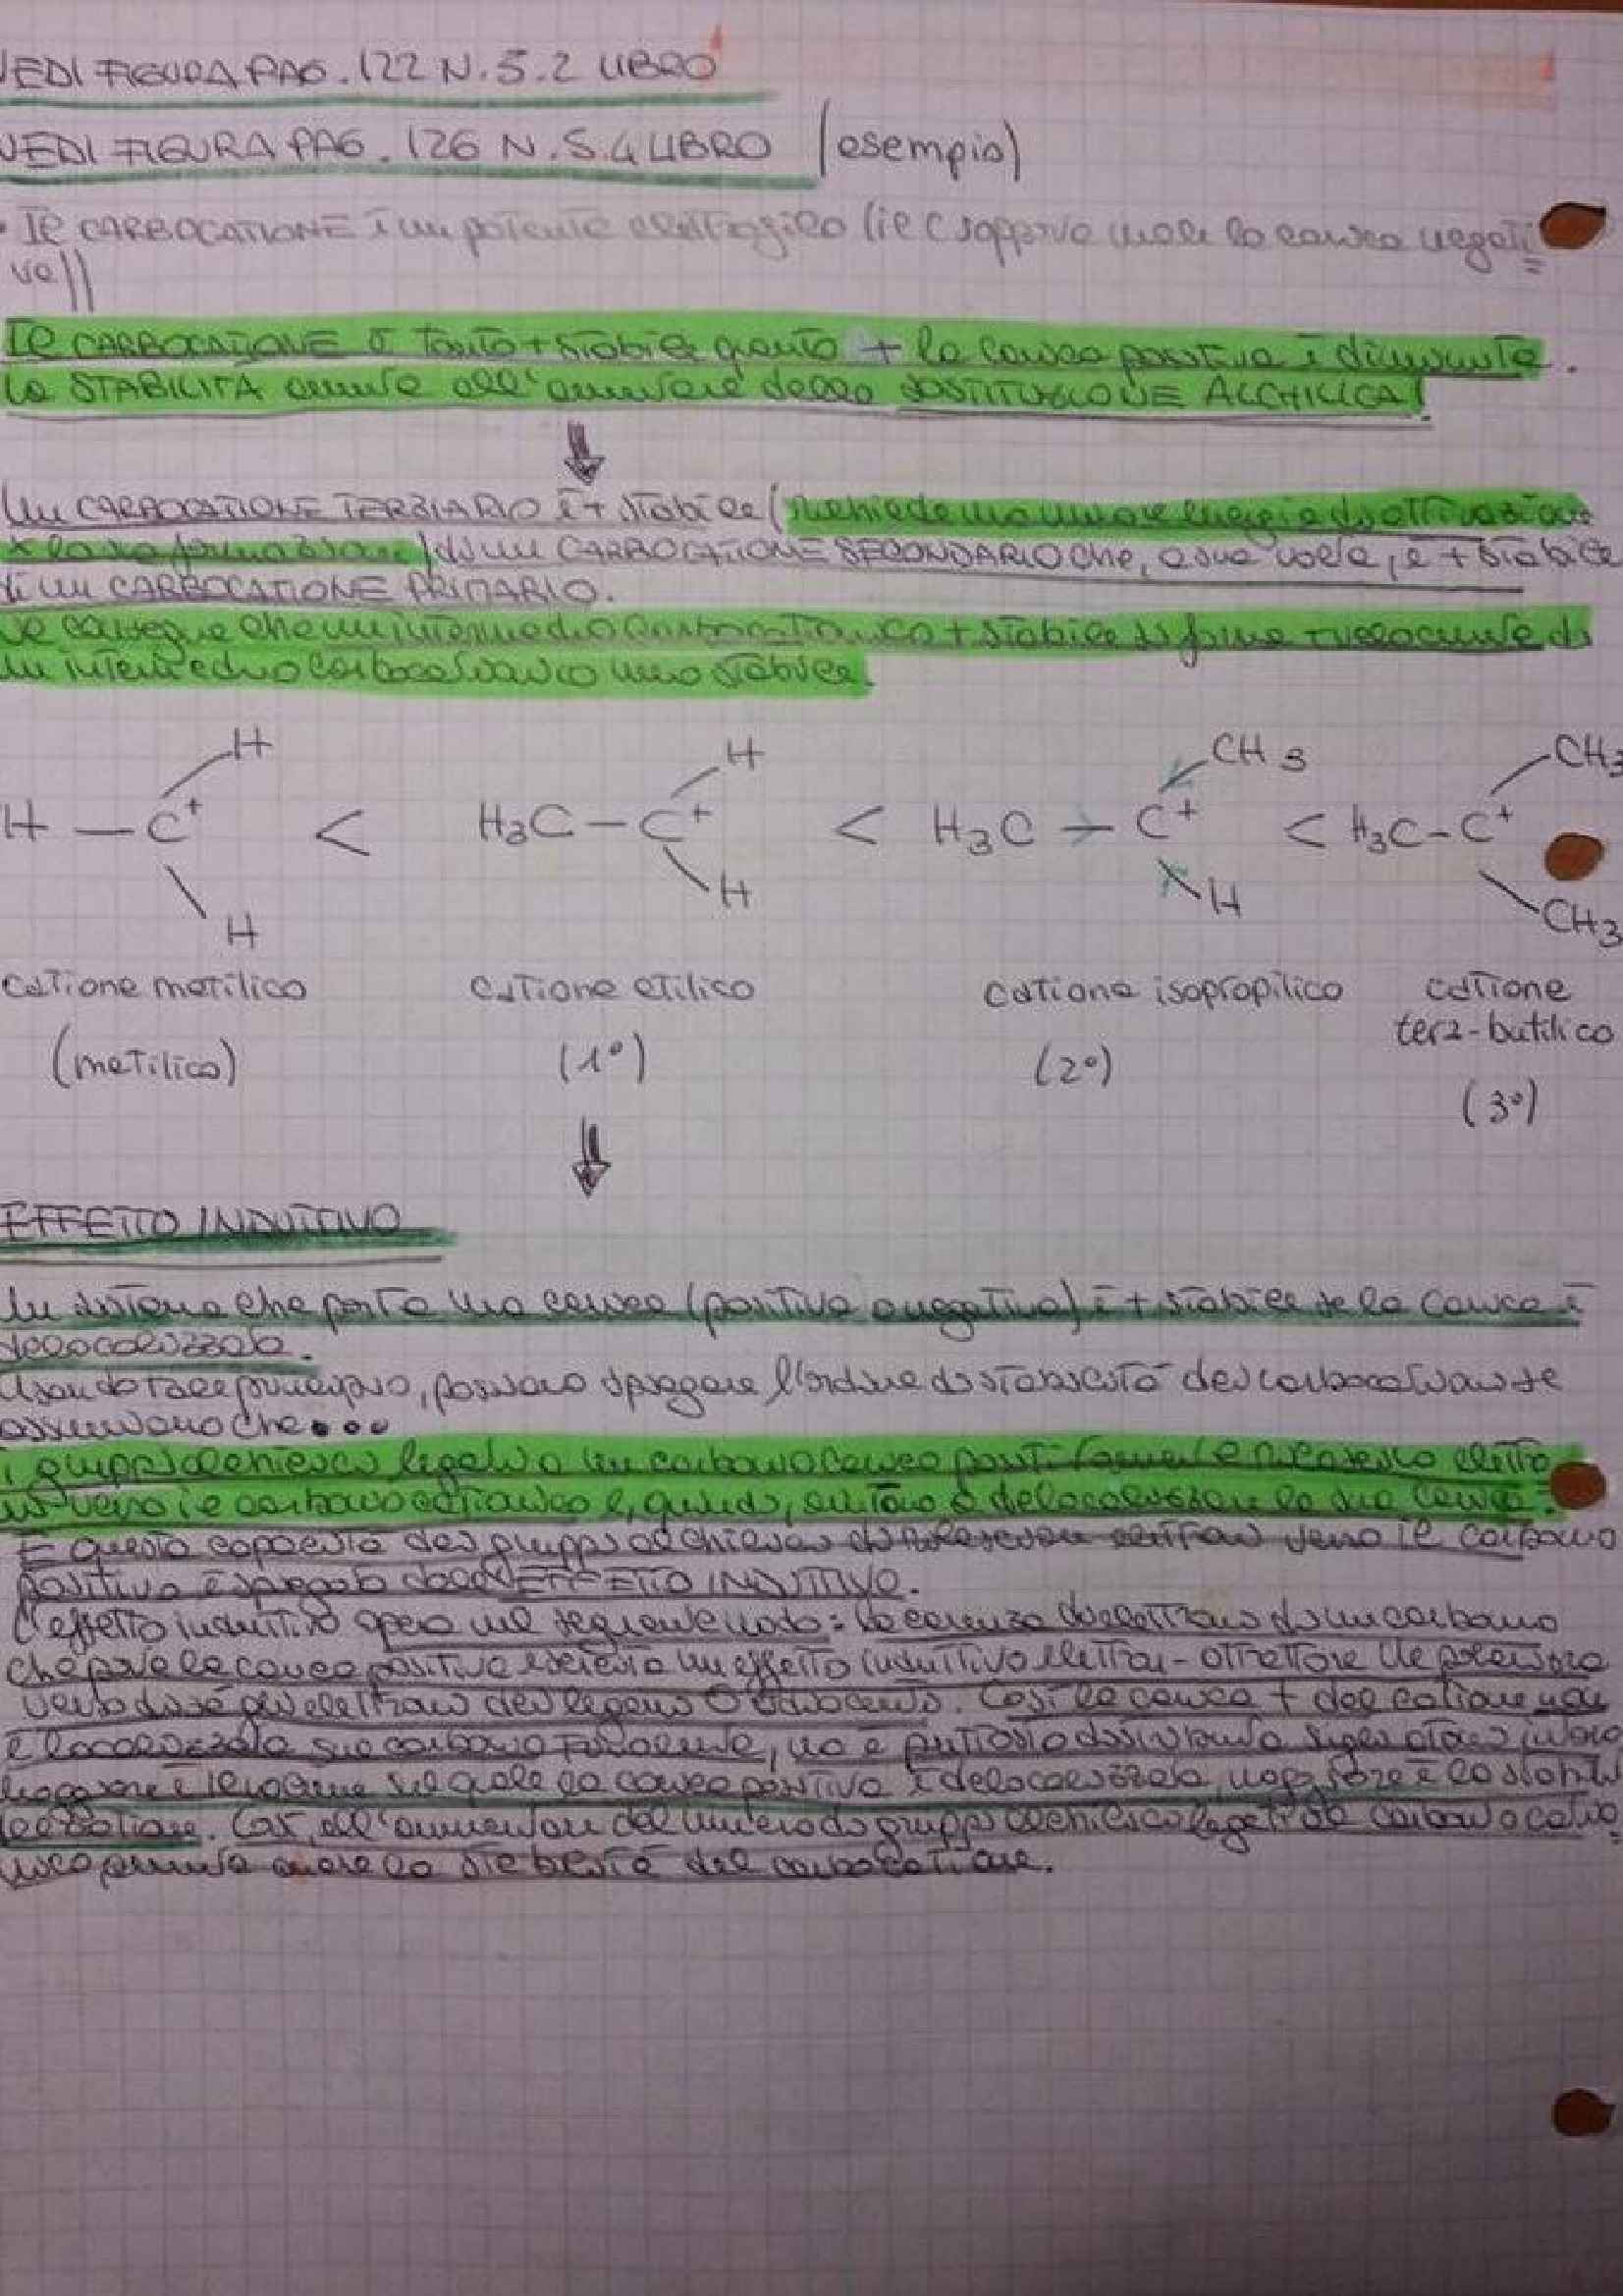 VEDI FIGURA PAG. 122 N. 5.2 LIBRO
VEDI FIGURA PAG. 126 N. 5.4 LIBRO (esempio)
• Il CARBOCATIONE è un potente elettrofilo (il C sopporta male la carica negati=
va))
Il CARBOCATIONE è tanto + stabile quanto + la carica positiva è diminuita.
La STABILITÀ aumenta all'aumentare della SOSTITUZIONE ALCHILICA!
Un CARBOCATIONE TERZIARIO è + stabile (richiede una minore energia di attivazione
x la sua formazione) di un CARBOCATIONE SECONDARIO che, a sua volta, è + stabile
di un CARBOCATIONE PRIMARIO.
Ne consegue che un intermedio carbocationico + stabile si forma + velocemente di
un intermedio carbocationico meno stabile.
H H CH3 CH3
H — C+ < H3C — C+ < H3C — C+ < H3C - C+
H H H CH3
catione metilico catione etilico catione isopropilico catione
terz-butilico
(metilico) (1°) (2°)
(3°)
EFFETTO INDUTTIVO
Un sistema che porta una carica (positiva o negativa) è + stabile se la carica è
delocalizzata.
Usando tale principio, possiamo spiegare l'ordine di stabilità dei carbocationi se
assumiamo che...
i gruppi alchilici legati a un carbonio carico positivamente rilasciano elettro
ni verso il carbonio cationico e, quindi, aiutano a delocalizzare la sua carica.
E questa capacità dei gruppi alchilici di rilasciare elettroni verso il carbonio
positivo è spiegata dall'EFFETTO INDUTTIVO.
L'effetto induttivo opera nel seguente modo: la carenza di elettroni di un carbonio
che porta la carica positiva esercita un effetto induttivo elettron-attrattore che polarizza
verso di sé gli elettroni dei legami adiacenti. Così la carica + del catione non
è localizzata sul carbonio trivalente, ma è piuttosto distribuita sugli atomi
maggiore è il volume sul quale la carica positiva è delocalizzata, maggiore è la stabi
lizzazione. Così, all'aumentare del numero di gruppi alchilici legati al carbonio catio
nico aumenta anche la stabilità del carbocatione.